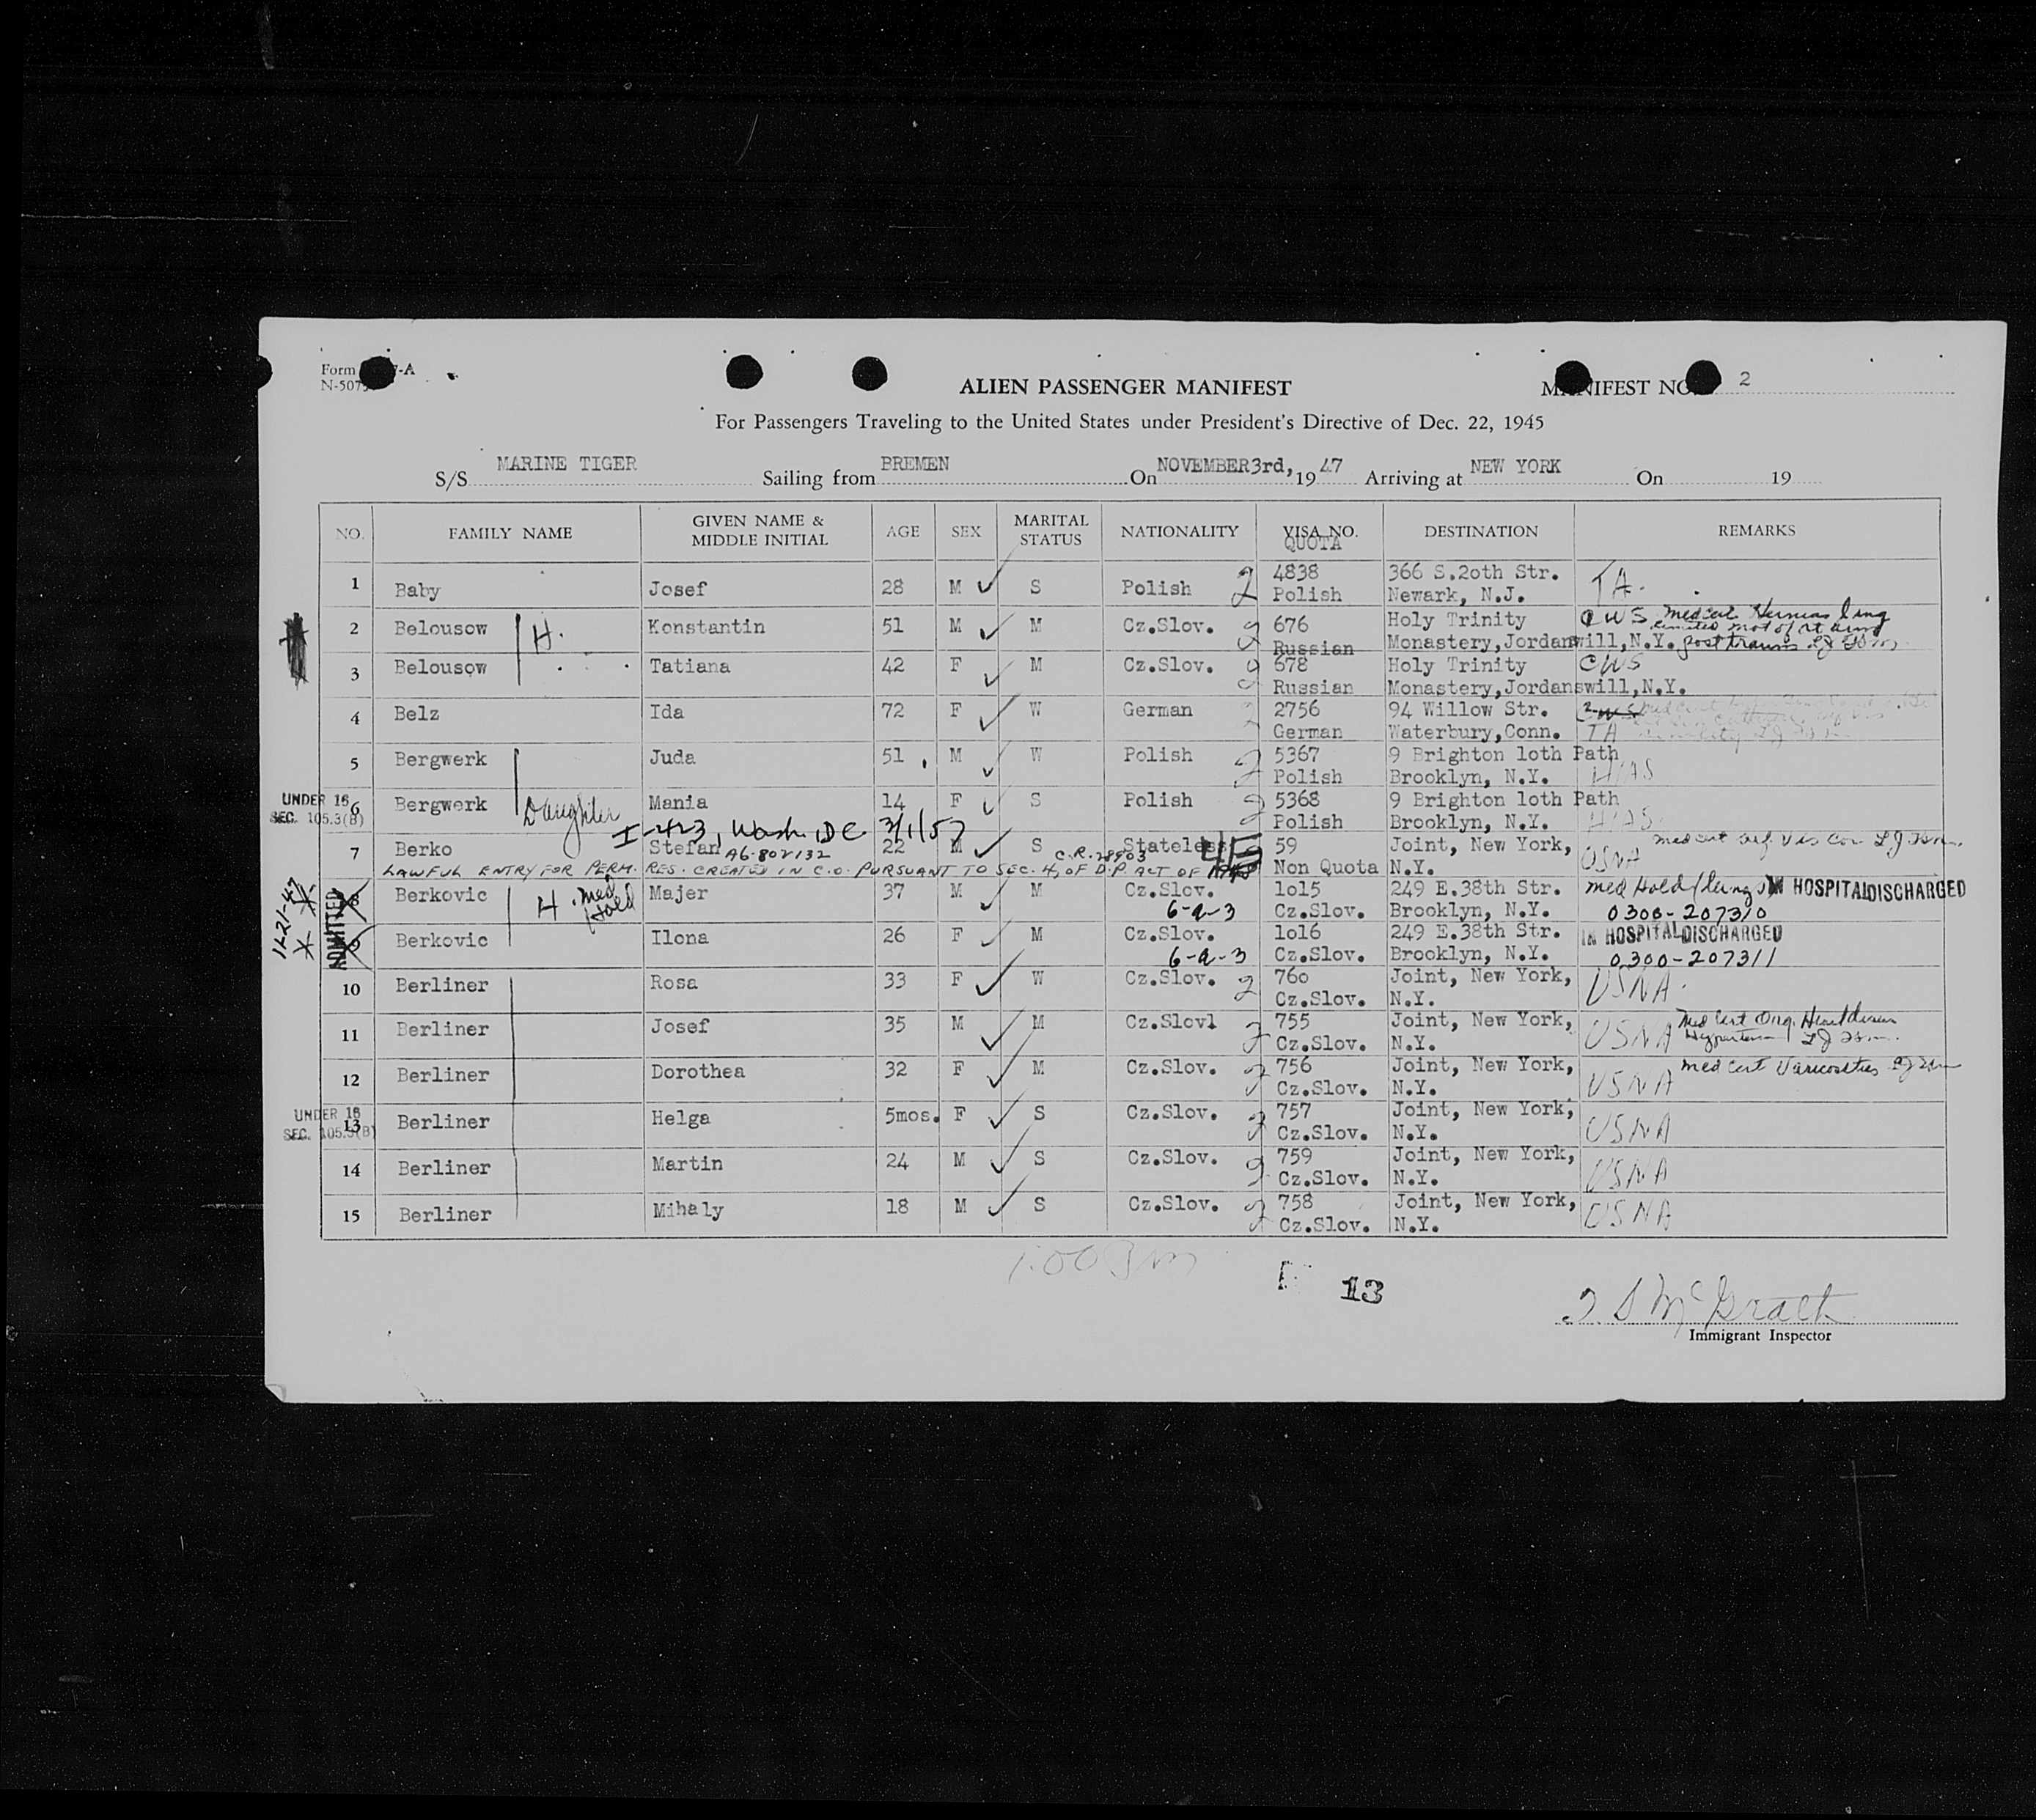 Form -A
N-507
ALIEN PASSENGER MANIFEST
MANIFEST NO. 2
For Passengers Traveling to the United States under President's Directive of Dec. 22, 1945
S/S MARINE TIGER Sailing from BREMEN On NOVEMBER 3rd, 19 47 Arriving at NEW YORK On 19
NO. FAMILY NAME GIVEN NAME & MIDDLE INITIAL AGE SEX MARITAL STATUS NATIONALITY VISA NO. QUOTA DESTINATION REMARKS
1 Baby Josef 28 M S Polish 2 4838 366 S.2oth Str. TA.
Polish Newark, N.J.
2 Belousow H. Konstantin 51 M M Cz.Slov. 2 676 Holy Trinity CWS med cert Hernias
Russian Monastery,Jordanswill,N.Y.
3 Belousow Tatiana 42 F M Cz.Slov. 678 Holy Trinity CWS
Russian Monastery,Jordanswill,N.Y.
4 Belz Ida 72 F W German 2 2756 94 Willow Str. CWS
German Waterbury,Conn. TA
5 Bergwerk Juda 51 M W Polish 2 5367 9 Brighton loth Path
Polish Brooklyn, N.Y. HIAS
UNDER 16
SEC. 105.3(B)
6 Bergwerk Daughter Mania 14 F S Polish 2 5368 9 Brighton loth Path
Polish Brooklyn, N.Y. HIAS
I-423, Wash, DC 3/1/57
7 Berko Stefan A6-802132 22 M S C.R. 28903 Stateless 59 Joint, New York, USNA med cert def. vis
Non Quota N.Y.
LAWFUL ENTRY FOR PERM. RES. CREATED IN C.O. PURSUANT TO SEC. 4, OF D.P. ACT OF
11-21-47
ADMITTED
8 Berkovic H. med Hold Majer 37 M M Cz.Slov. 1o15 249 E.38th Str. Med Hold / Lungs IN HOSPITAL DISCHARGED
6-2-3 Cz.Slov. Brooklyn, N.Y. 0300-207310
9 Berkovic Ilona 26 F M Cz.Slov. 1o16 249 E.38th Str. IN HOSPITAL DISCHARGED
6-2-3 Cz.Slov. Brooklyn, N.Y. 0300-207311
10 Berliner Rosa 33 F W Cz.Slov. 2 76o Joint, New York, USNA.
Cz.Slov. N.Y.
11 Berliner Josef 35 M M Cz.Slovl 2 755 Joint, New York, USNA Med Cert Org. Heart disease
Cz.Slov. N.Y. Hypertension
12 Berliner Dorothea 32 F M Cz.Slov. 2 756 Joint, New York, USNA med cert Varicosities
Cz.Slov. N.Y.
UNDER 16
SEC. 105.3(B)
13 Berliner Helga 5mos. F S Cz.Slov. 2 757 Joint, New York, USNA
Cz.Slov. N.Y.
14 Berliner Martin 24 M S Cz.Slov. 2 759 Joint, New York, USNA
Cz.Slov. N.Y.
15 Berliner Mihaly 18 M S Cz.Slov. 2 758 Joint, New York, USNA
Cz.Slov. N.Y.
13
McGrath
Immigrant Inspector